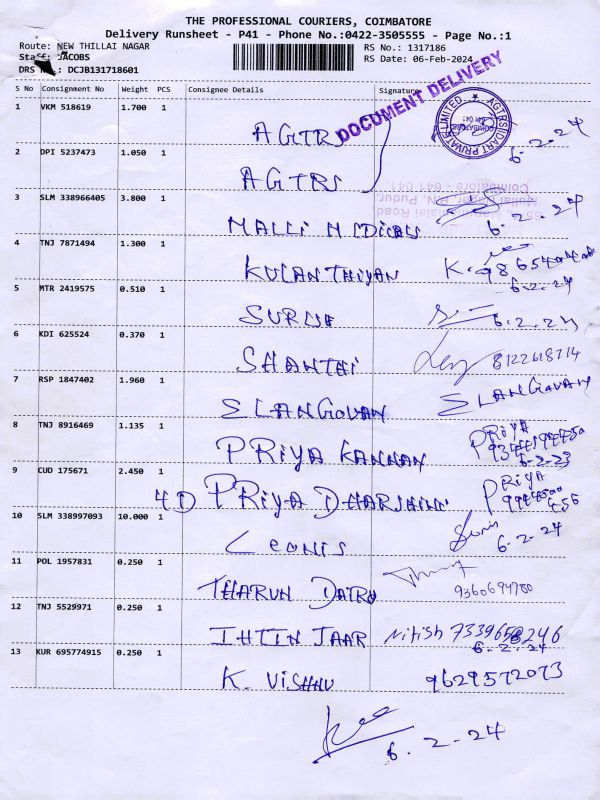 THE PROFESSIONAL COURIERS, COIMBATORE
Delivery Runsheet - P41 - Phone No.:0422-3505555 - Page No.:1
Route: NEW THILLAI NAGAR RS No.: 1317186
Staff: JACOBS RS Date: 06-Feb-2024
DRS DCJB131718601
S No Consignment No Weight PCS Consignee Details Signature
DOCUMENT DELIVERY
1 VKM 518619 1.700 1 AGTRS 6-2-24
2 DPI 5237473 1.050 1 AGTRS
3 SLM 338966405 3.800 1 MALLI 6.2.24
4 TNJ 7871494 1.300 1 KULANTHIYAN K.
6.2.24
5 MTR 2419575 0.510 1 6.2.24
6 KDI 625524 0.370 1 SHANTHI 8122618714
7 RSP 1847402 1.960 1 ELANGOVAN ELANGOVAN
8 TNJ 8916469 1.135 1 PRIYA KANNAN PRIYA
6-2-23
9 CUD 175671 2.450 1 4D PRIYA DHARSHINI PRIYA
10 SLM 338997093 10.000 1 Leonis 6-2-24
11 POL 1957831 0.250 1 THARUN DAIRY 9360694780
12 TNJ 5529971 0.250 1 IHTIN JAAR Nitish
6.2.24
13 KUR 695774915 0.250 1 K. VISHNU 9629572073
6.2.24